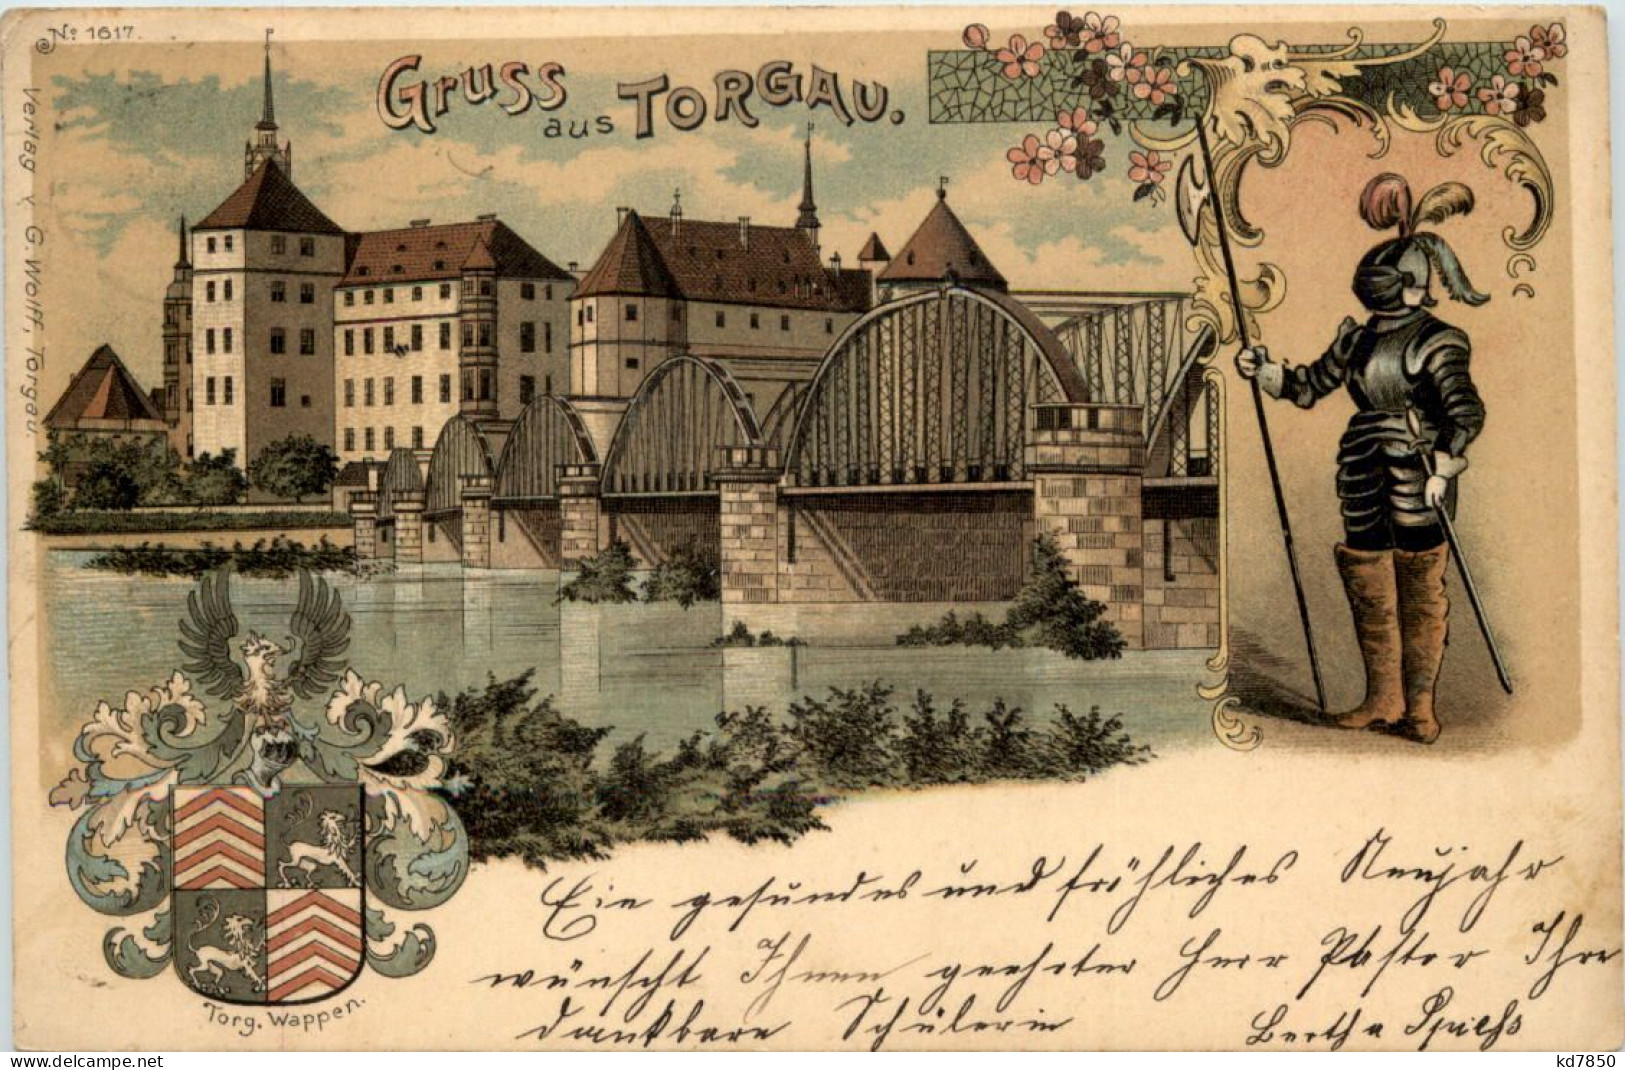 No 1617.
Gruss
aus TORGAU.
Verlag v. G. Wolff, Torgau.
Torg. Wappen.
Ein gesundes und fröhliches Neujahr
wünscht Ihnen geehrter Herr Pastor Ihre
dankbare Schülerin Bertha Spiehs
delcampe.net
kd7850